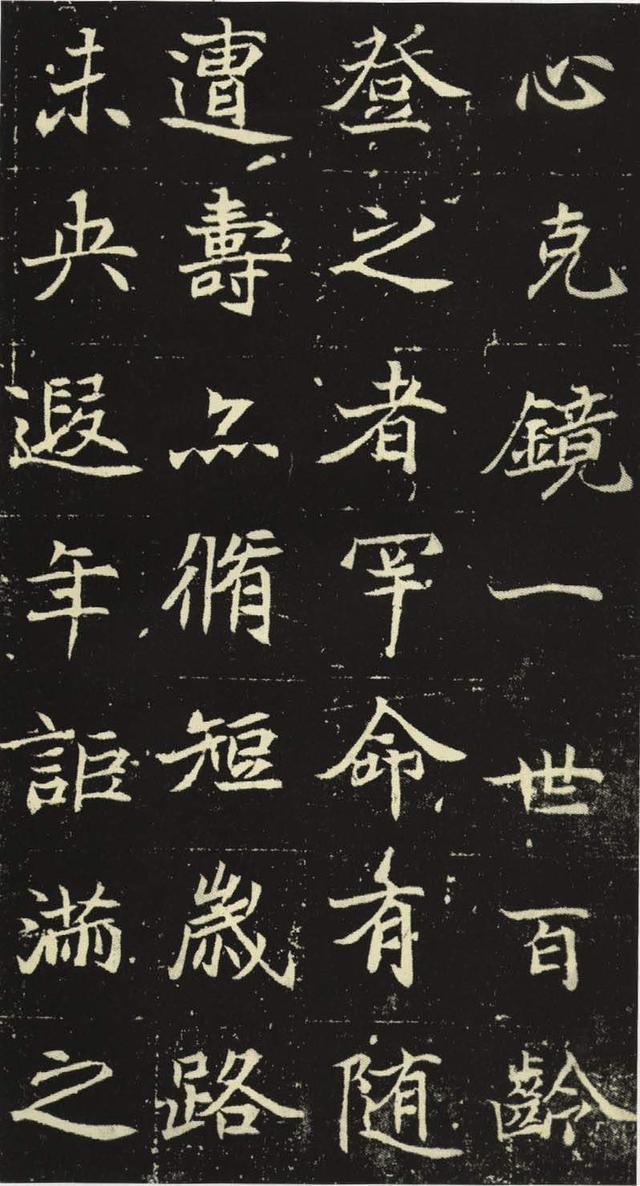 心克鏡一世百齡
登之者罕命有随
遭壽夭脩短歳路
未央遐年詎滿之